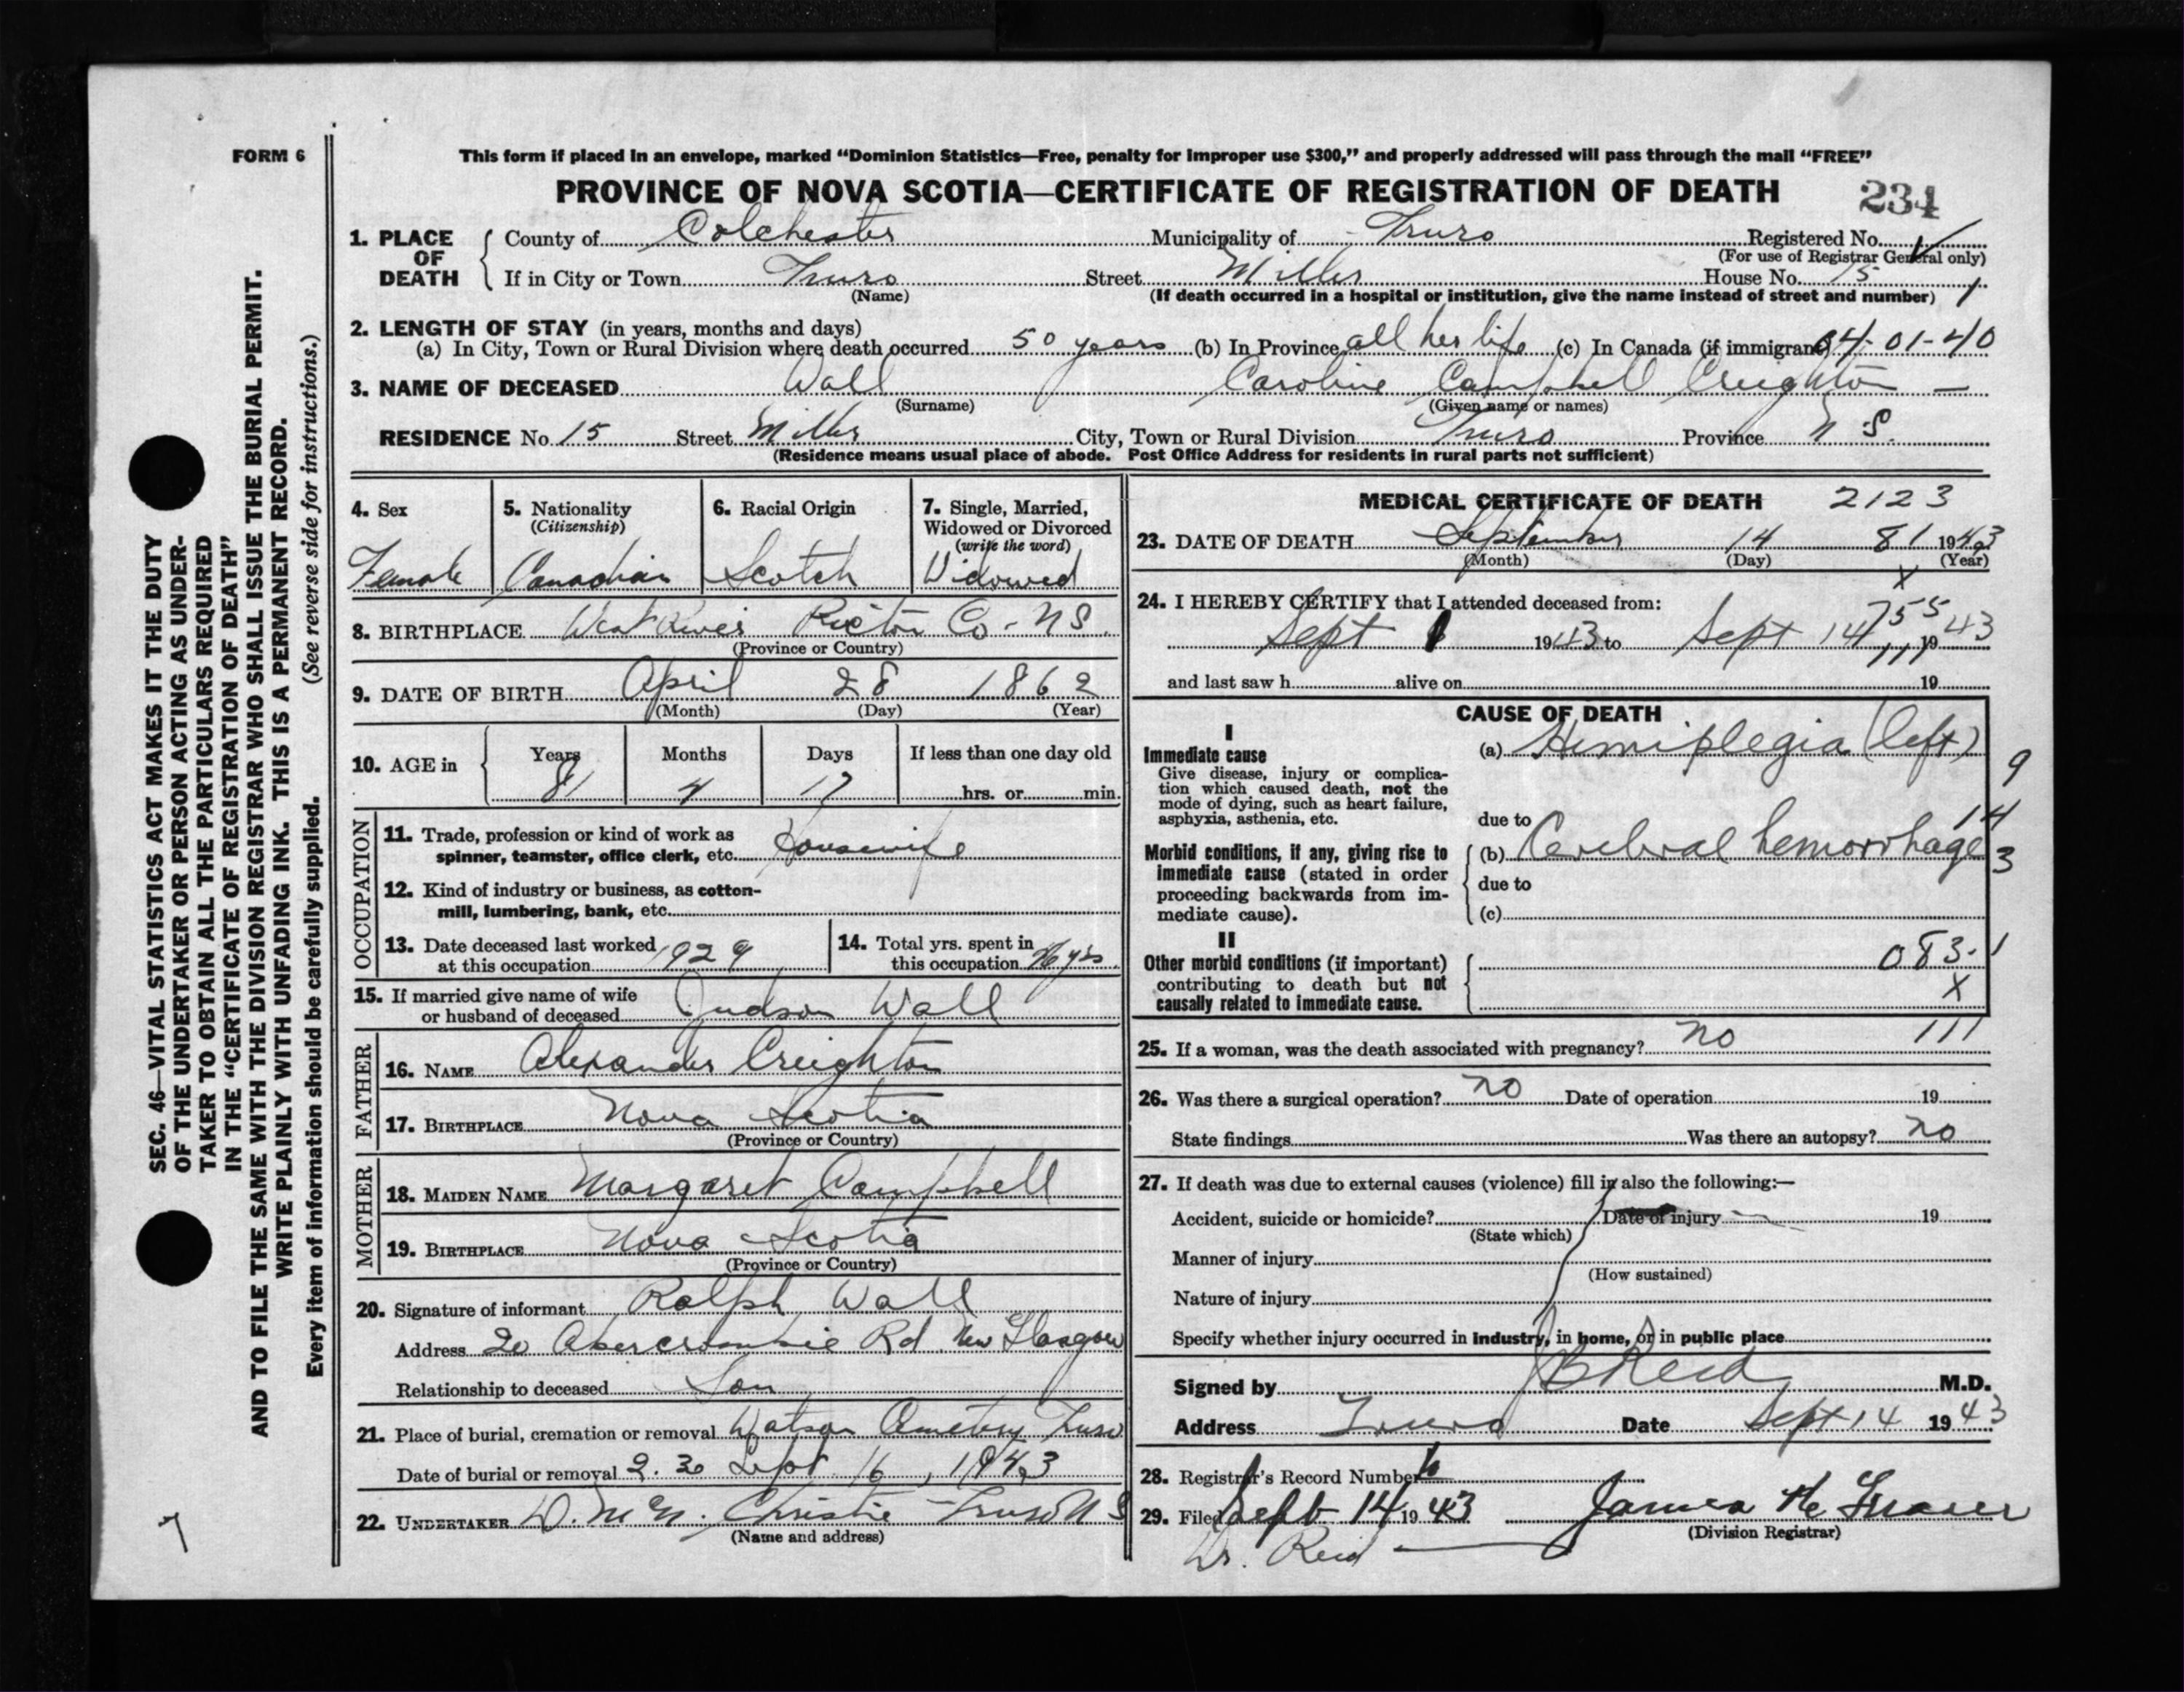 FORM 6
This form if placed in an envelope, marked “Dominion Statistics—Free, penalty for improper use $300,” and properly addressed will pass through the mail “FREE”
PROVINCE OF NOVA SCOTIA—CERTIFICATE OF REGISTRATION OF DEATH 234
1. PLACE OF DEATH
County of Colchester Municipality of Truro Registered No.
(For use of Registrar General only)
If in City or Town Truro Street Miller House No. 15
(Name) (If death occurred in a hospital or institution, give the name instead of street and number)
2. LENGTH OF STAY (in years, months and days)
(a) In City, Town or Rural Division where death occurred 50 years (b) In Province all her life (c) In Canada (if immigrant) 04-01-40
3. NAME OF DECEASED Wall Caroline Campbell Creighton —
(Surname) (Given name or names)
RESIDENCE No 15 Street Miller City, Town or Rural Division Truro Province N S.
(Residence means usual place of abode. Post Office Address for residents in rural parts not sufficient)
4. Sex
Female
5. Nationality
(Citizenship)
Canadian
6. Racial Origin
Scotch
7. Single, Married,
Widowed or Divorced
(write the word)
Widowed
8. BIRTHPLACE West River Pictou Co - N S.
(Province or Country)
9. DATE OF BIRTH April 28 1862
(Month) (Day) (Year)
10. AGE in
Years Months Days If less than one day old
81 4 17 hrs. or min.
OCCUPATION
11. Trade, profession or kind of work as
spinner, teamster, office clerk, etc. Housewife
12. Kind of industry or business, as cotton-
mill, lumbering, bank, etc.
13. Date deceased last worked
at this occupation 1929
14. Total yrs. spent in
this occupation yrs
15. If married give name of wife
or husband of deceased Judson Wall
FATHER
16. NAME Alexander Creighton
17. BIRTHPLACE Nova Scotia
(Province or Country)
MOTHER
18. MAIDEN NAME Margaret Campbell
19. BIRTHPLACE Nova Scotia
(Province or Country)
20. Signature of informant Ralph Wall
Address 20 Abercrombie Rd. New Glasgow
Relationship to deceased Son
21. Place of burial, cremation or removal Watson Cemetery Truro
Date of burial or removal 2.30 Sept. 16, 1943
22. UNDERTAKER D. McN. Christie - Truro N S
(Name and address)
MEDICAL CERTIFICATE OF DEATH 2123
23. DATE OF DEATH September 14 81 1943
(Month) (Day) (Year)
X
24. I HEREBY CERTIFY that I attended deceased from:
755
Sept 1943 to Sept 14 1943
111
and last saw h alive on 19
CAUSE OF DEATH
I
Immediate cause
Give disease, injury or complica-
tion which caused death, not the
mode of dying, such as heart failure,
asphyxia, asthenia, etc.
(a) Hemiplegia (left)
9
due to
14
Morbid conditions, if any, giving rise to
immediate cause (stated in order
proceeding backwards from im-
mediate cause).
(b) Cerebral hemorrhage
3
due to
(c)
II
Other morbid conditions (if important)
contributing to death but not
causally related to immediate cause.
083.1
X
111
25. If a woman, was the death associated with pregnancy? no
26. Was there a surgical operation? no Date of operation 19
State findings Was there an autopsy? no
27. If death was due to external causes (violence) fill in also the following:—
Accident, suicide or homicide? Date of injury 19
(State which)
Manner of injury
(How sustained)
Nature of injury
Specify whether injury occurred in industry, in home, or in public place
Signed by J B Reid M.D.
Address Truro Date Sept 14 1943
28. Registrar's Record Number
29. Filed Sept 14 1943 James Mc Fraser
(Division Registrar)
Dr. Reid
SEC. 46—VITAL STATISTICS ACT MAKES IT THE DUTY
OF THE UNDERTAKER OR PERSON ACTING AS UNDER-
TAKER TO OBTAIN ALL THE PARTICULARS REQUIRED
IN THE “CERTIFICATE OF REGISTRATION OF DEATH”
AND TO FILE THE SAME WITH THE DIVISION REGISTRAR WHO SHALL ISSUE THE BURIAL PERMIT.
WRITE PLAINLY WITH UNFADING INK. THIS IS A PERMANENT RECORD.
Every item of information should be carefully supplied. (See reverse side for instructions.)
7